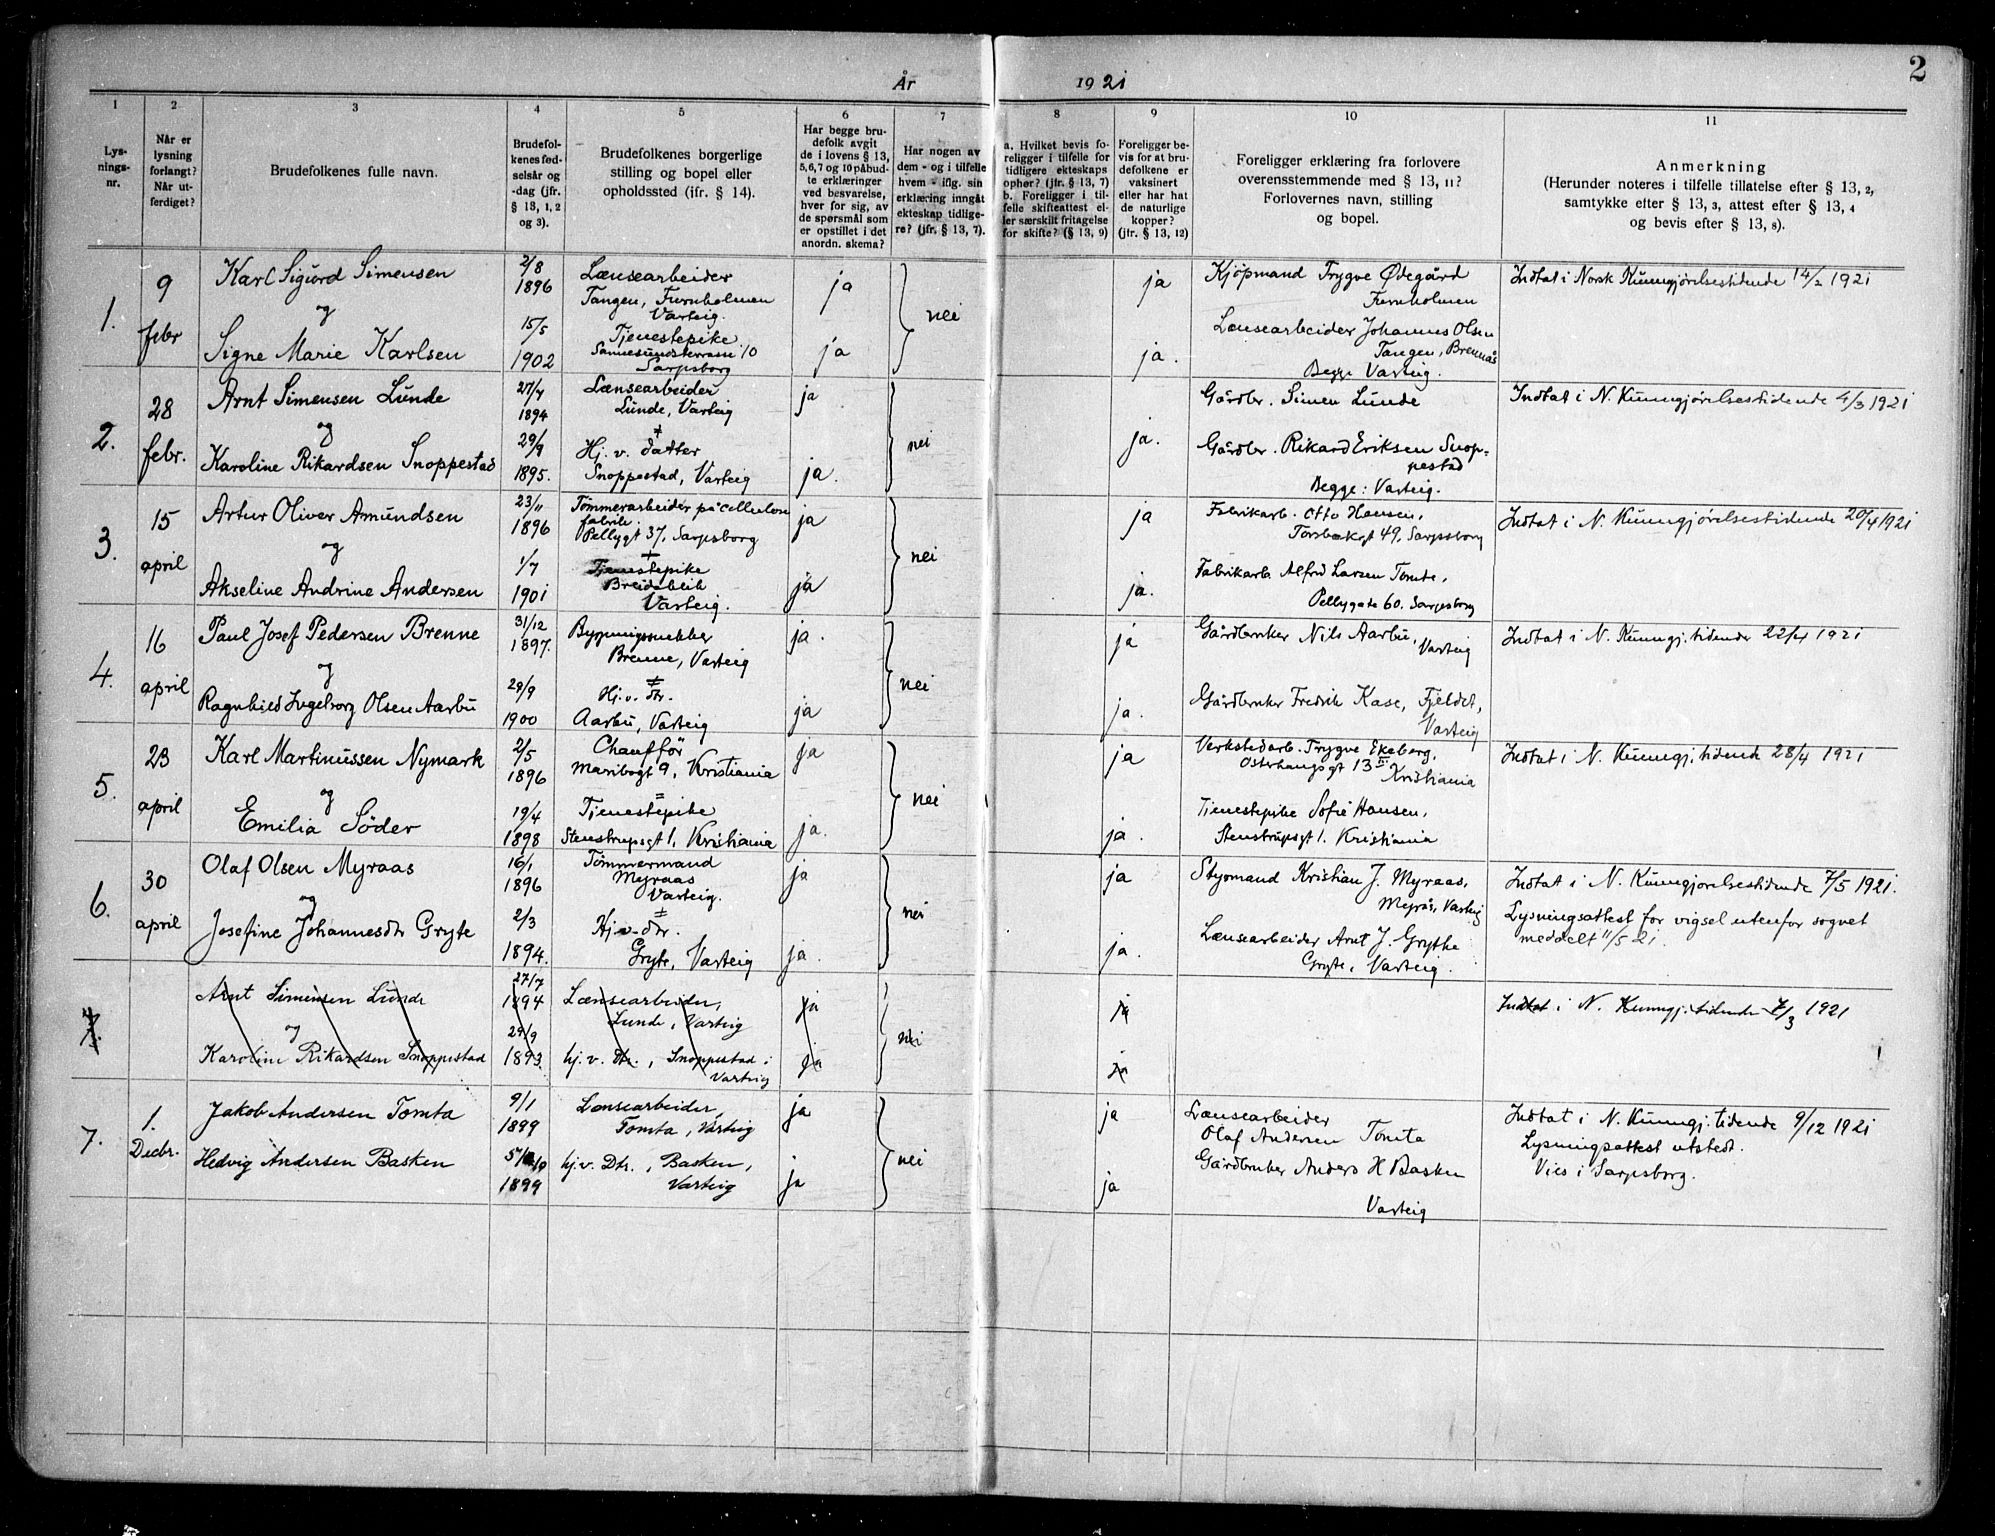 2
År 1921
1
2
3
4
5
6
7
8
9
10
11
Lys-
nings-
nr.
Når er
lysning
forlangt?
Når ut-
ferdiget?
Brudefolkenes fulle navn.
Brudefol-
kenes fød-
selsår og
-dag (jfr.
§ 13, 1, 2
og 3).
Brudefolkenes borgerlige
stilling og bopel eller
opholdssted (jfr. § 14).
Har begge bru-
defolk avgit
de i lovens § 13,
5,6,7 og 10 påbud-
te erklæringer
ved besvarelse,
hver for sig, av
de spørsmål som
er opstillet i det
anordn. skema?
Har nogen av
dem - og i tilfelle
hvem - iflg. sin
erklæring inngåt
ekteskap tidlige-
re? (jfr. § 13, 7).
a. Hvilket bevis fo-
religger i tilfelle for
tidligere ekteskaps
ophør? (jfr. § 13, 7)
b. Foreligger i til-
felle skifteattest el-
ler særskilt fritagelse
for skifte? (§ 13, 9)
Foreligger be-
vis for at bru-
defolkene er
vaksinert
eller har hat
de naturlige
kopper?
(jfr. § 13, 12)
Foreligger erklæring fra forlovere
overensstemmende med § 13, 11?
Forlovernes navn, stilling
og bopel.
Anmerkning
(Herunder noteres i tilfelle tillatelse efter § 13, 2,
samtykke efter § 13, 3, attest efter § 13, 4
og bevis efter § 13, 8).
1.
9
febr
Karl Sigurd Simensen
og
Signe Marie Karlsen
2/8
1896
15/5
1902
Lænsearbeider
Tangen, Furuholmen
Varteig.
Tjenestepike
Sannesundsterrasse 10
Sarpsborg
ja
ja
nei
ja
ja.
Kjøpmand Trygve Ødegård
Furuholmen
Lænsearbeider Johannes Olsen
Tangen, Brennås
Begge Varteig.
Indtat i Norsk Kunngjørelsestidende 14/2 1921
2.
28
febr.
Arnt Simensen Lunde
og
Karoline Rikardsen Snoppestad
27/7
1894
29/9
1895.
Lænsearbeider
Lunde, Varteig
Hj. v. datter
Snoppestad, Varteig
ja
ja.
nei
ja.
Gårdbr. Simen Lunde
Gårdbr. Rikard Eriksen Snop-
pestad
Begge: Varteig.
Indtat i N. Kunngjørelsestidende 4/3 1921
3.
15
april
Artur Oliver Amundsen
og
Akseline Andrine Andersen
23/11
1896
1/7
1901
Tømmerarbeider på cellulose
fabrik.
Pellygt 37, Sarpsborg
Tjenestepike
Varteig.
ja
ja
nei
ja
ja.
Fabrikarb. Otto Hansen,
Torsbækgt 49, Sarpsborg
Fabrikarb. Alfrd Larsen Tomte,
Pellygate 60. Sarpsborg
Indtat i N. Kunngjørelsestidende 20/4 1921
4.
16
april
Paul Josef Pedersen Brenne
og
Ragnhild Ingeborg Olsen Aarbu
31/12
1897.
29/9
1900
Bygningssnekker
Brenne, Varteig
Hj. v. dtr.
Aarbu, Varteig
ja.
ja
nei
ja
ja.
Gårdbruker Nils Aarbu,
Varteig
Gårdbruker Fredrik Kase, Fjeldet,
Varteig
Indtat i N. Kunngj. tidende 22/4 1921
5.
23
april
Karl Martinussen Nymark
og
Emilia Söder
2/5
1896
19/4
1898
Chauffør
Maribogt 9, Kristiania
Tjenestepike
Stenstrupsgt 1, Kristiania
ja
ja.
nei
ja
ja.
Verkstedarb. Trygve Ekeberg,
Osterhausgt 13 III
Kristiania
Tjenestepike Sofie Hansen,
Stenstrupsgt 1. Kristiania
Indtat i N. Kunngj. tidende 28/4 1921
6.
30
april
Olaf Olsen Myraas
og
Josefine Johannesdtr Gryte
16/1
1896
2/3
1894.
Tømmermand
Myraas
Varteig.
Hj. v. dtr.
Gryte, Varteig
ja
ja.
nei
ja
ja.
Styrmand Kristian J. Myraas,
Myrås, Varteig
Lænsearbeider Arnt J. Grythe
Gryte, Varteig.
Indtat i N. Kunngjørelsestidende 7/5 1921.
Lysningsattest for vigsel utenfor sognet
meddelt 11/5 21.
7.
Arnt Simensen Lunde
og
Karoline Rikardsen Snoppestad
27/7
1894
29/9
1893.
Lænsearbeider,
Lunde, Varteig
hj. v. Dtr., Snoppestad i
Varteig
ja
ja
nei
ja
ja
Indtat i N. Kunngj. tidende 7/3 1921
7.
1.
Decbr.
Jakob Andersen Tomta
Hedvig Andersen Basken
9/1
1899
1899
Lænsearbeider,
Tomta, Varteig
hj. v. Dtr., Basken,
Varteig
ja
ja
nei
ja
ja
Lænsearbeider
Olaf Andersen Tomta
Gårdbruker Anders H Basken
Varteig
Indtat i N. Kunngj. tidende 9/12 1921
Lysningsattest utstedt.
Vies i Sarpsborg.